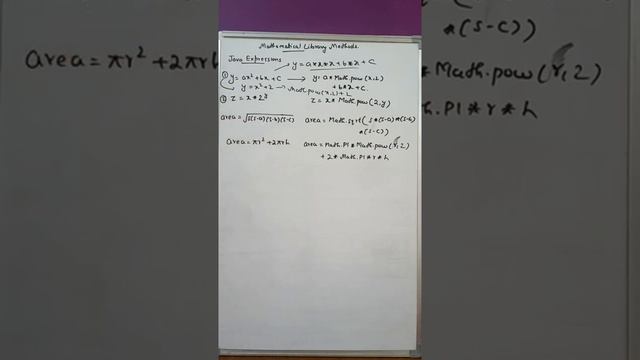 Mathematical Library Methods
Java Expressions
y = a*x*x+b*x+c
① y = ax²+bx+c → y = a*Math.pow(x,2)
+b*x+c.
y = x²+2 → Math.pow(x,2)+2
② z = x*2³ z = x*Math.pow(2,y)
area = √s(s-a)(s-b)(s-c) area = Math.sqrt(s*(s-a)*(s-b)
*(s-c))
area = πr²+2πrh area = Math.PI*Math.pow(r,2)
+2*Math.PI*r*h